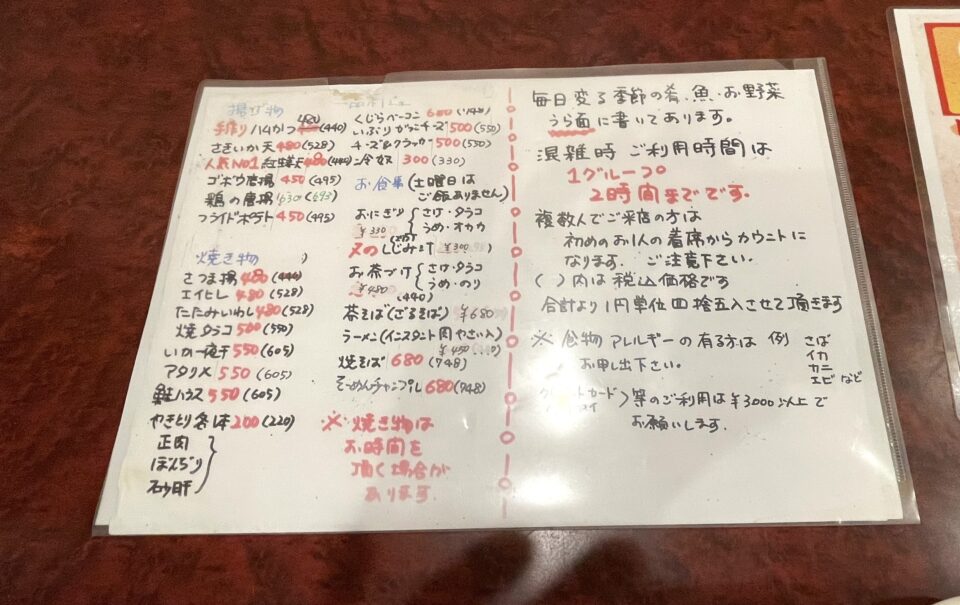 揚げ物
手作りハムかつ 480 (440)
さきいか天 480 (528)
人気NO1 紅生姜天 480 (440)
ゴボウ唐揚 450 (495)
鶏の唐揚 630 (693)
フライドポテト 450 (495)
焼き物
さつま揚 480 (440)
エイヒレ 480 (528)
たたみいわし 480 (528)
焼タラコ 500 (550)
いか一夜干 550 (605)
アタリメ 550 (605)
鮭ハラス 550 (605)
やきとり各1本 200 (220)
正肉
ぼんぢり
砂肝
くじらベーコン 680 (748)
いぶりがっこチーズ 500 (550)
チーズ&クラッカー 500 (550)
冷奴 300 (330)
お食事 (土曜日は
ご飯ありません)
おにぎり さけ・タラコ
¥330 うめ・オカカ
しじみ汁 ¥300
お茶づけ さけ・タラコ
¥480 うめ・のり
(440)
茶そば(ざるそば) ¥680
ラーメン(インスタント肉やさい入)
¥450
焼そば 680 (748)
そーめんチャンプル 680 (748)
※焼き物は
お時間を
頂く場合が
あります.
毎日変る季節の肴.魚.お野菜
うら面に書いてあります。
混雑時 ご利用時間は
1グループ
2時間までです.
複数人でご来店の方は
初めのお1人の着席からカウントに
なります. ご注意下さい.
( )内は税込価格です
合計より1円単位四捨五入させて頂きます
※食物アレルギーの有る方は 例 さば
お申し出下さい。 イカ
カニ
エビなど
カード )等のご利用は¥3000以上で
お願いします.